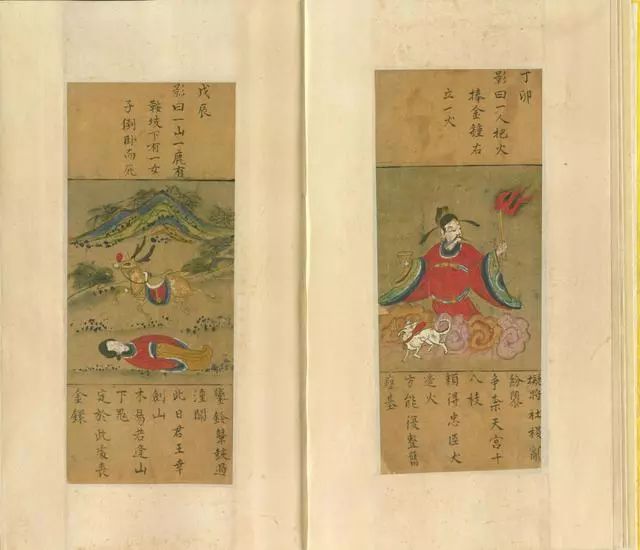 丁卯
影曰一人把火
捧金鐘右
立一犬
擬將社稷亂
紛
爭奈天宮十
八枝
賴得忠臣犬
邊火
方能復整舊
基
戊辰
影曰一山一鹿有
鞍坡下有一女
子倒卧而死
鑾鈴鼙鼓過
潼關
此日君王幸
劍山
木易若逢山
下鬼
定於此處喪
金鐶